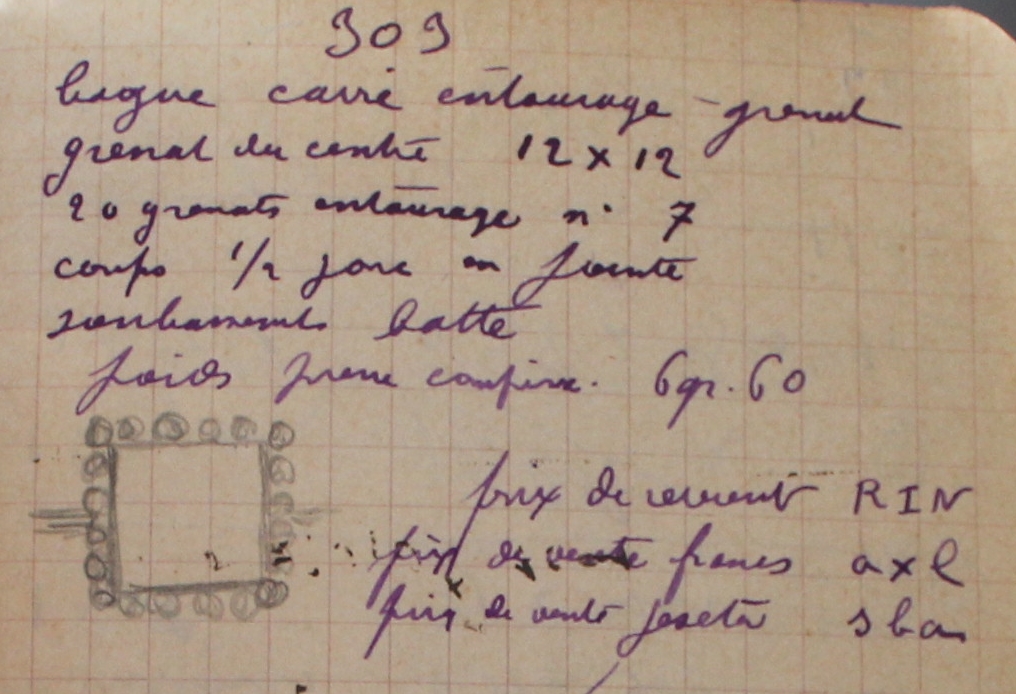 303
bague carré entourage grenat
grenat du centre 12 x 12
20 grenats entourage n° 7
corps 1/2 jonc en pointe
soubassements batte
poids pierre comprise. 6gr.60
prix de revient RIN
prix de vente francs axl
prix de vente peseta sba